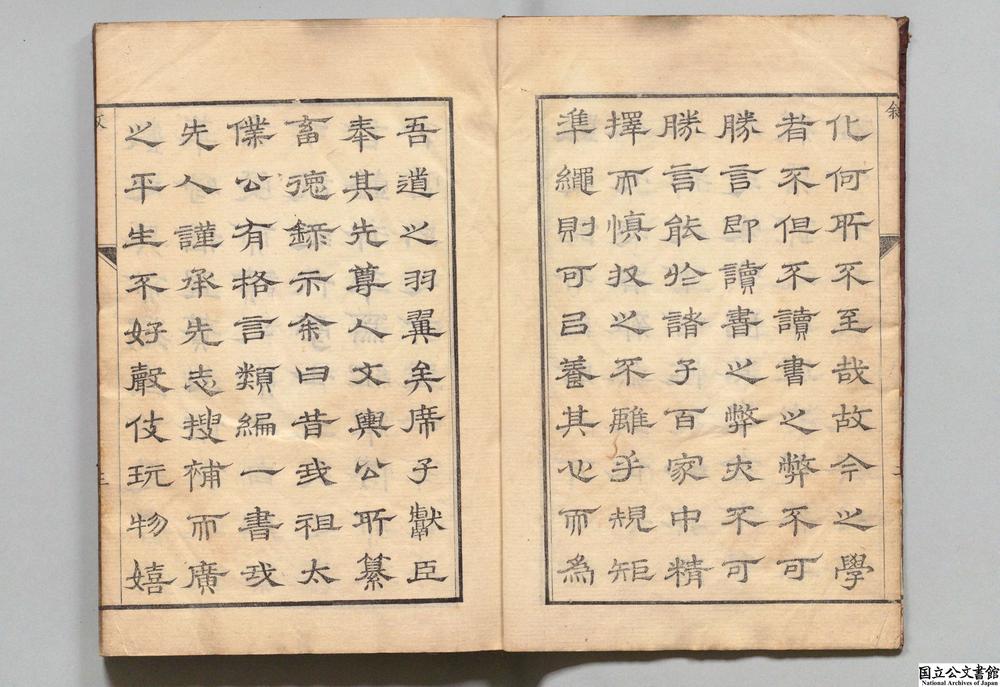 化何所不至哉故今之學
者不但不讀書之弊不可
勝言即讀書之弊亦不可
勝言能於諸子百家中精
擇而慎收之不離乎規矩
準繩則可以養其心而為
吾道之羽翼矣席子獻臣
奉其先尊人文輿公所纂
畜德錄示余曰昔我祖太
僕公有格言類編一書我
先人謹承先志搜補而廣
之平生不好聲伎玩物嬉
国立公文書館
National Archives of Japan